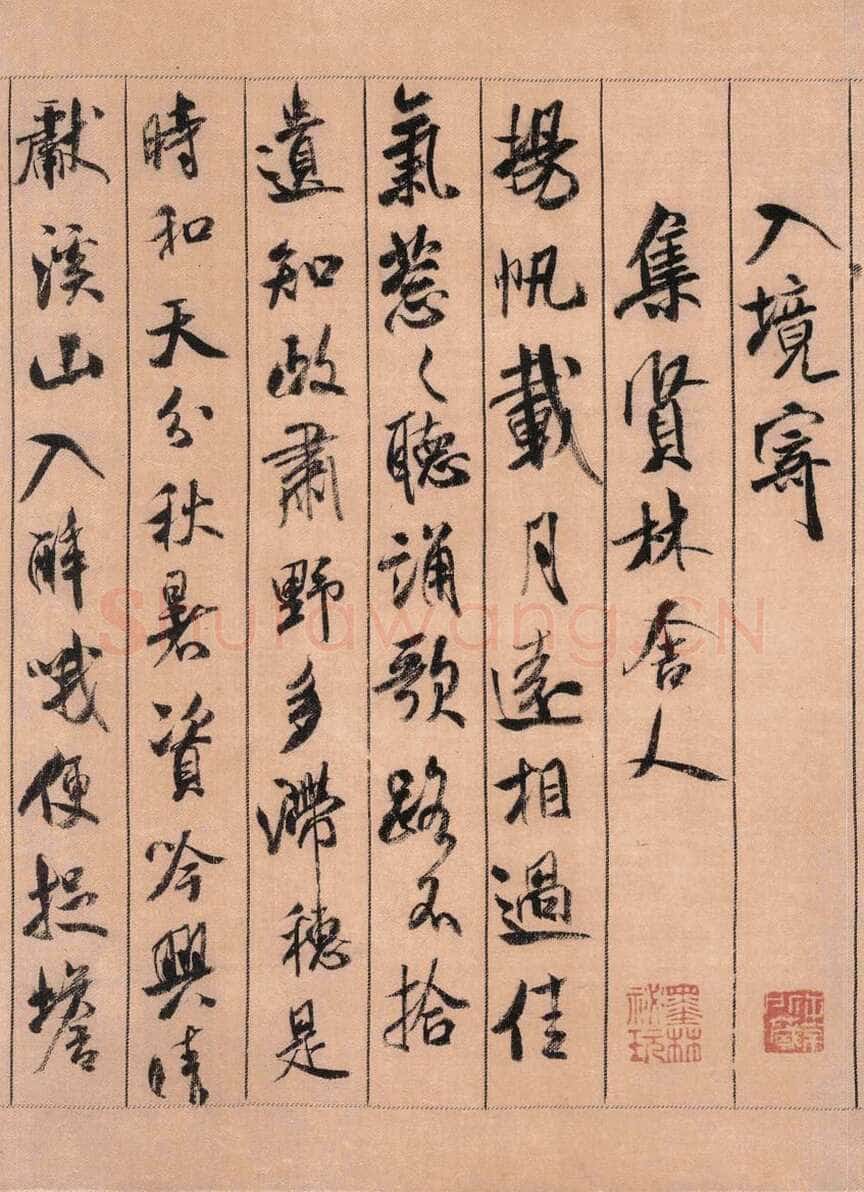 入境寄
集賢林舍人
揚帆載月遠相過佳
氣葱々聽誦歌路不拾
遺知政肅野多滯穗是
時和天分秋暑資吟興晴
獻溪山入酔哦便捉蟾
墨林
祕玩
Shufawang.CN